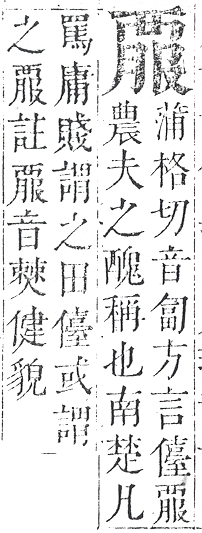 蒲格切音匐方言儓
農夫之醜稱也南楚凡
罵庸賤謂之田儓或謂
之註音僰健貌